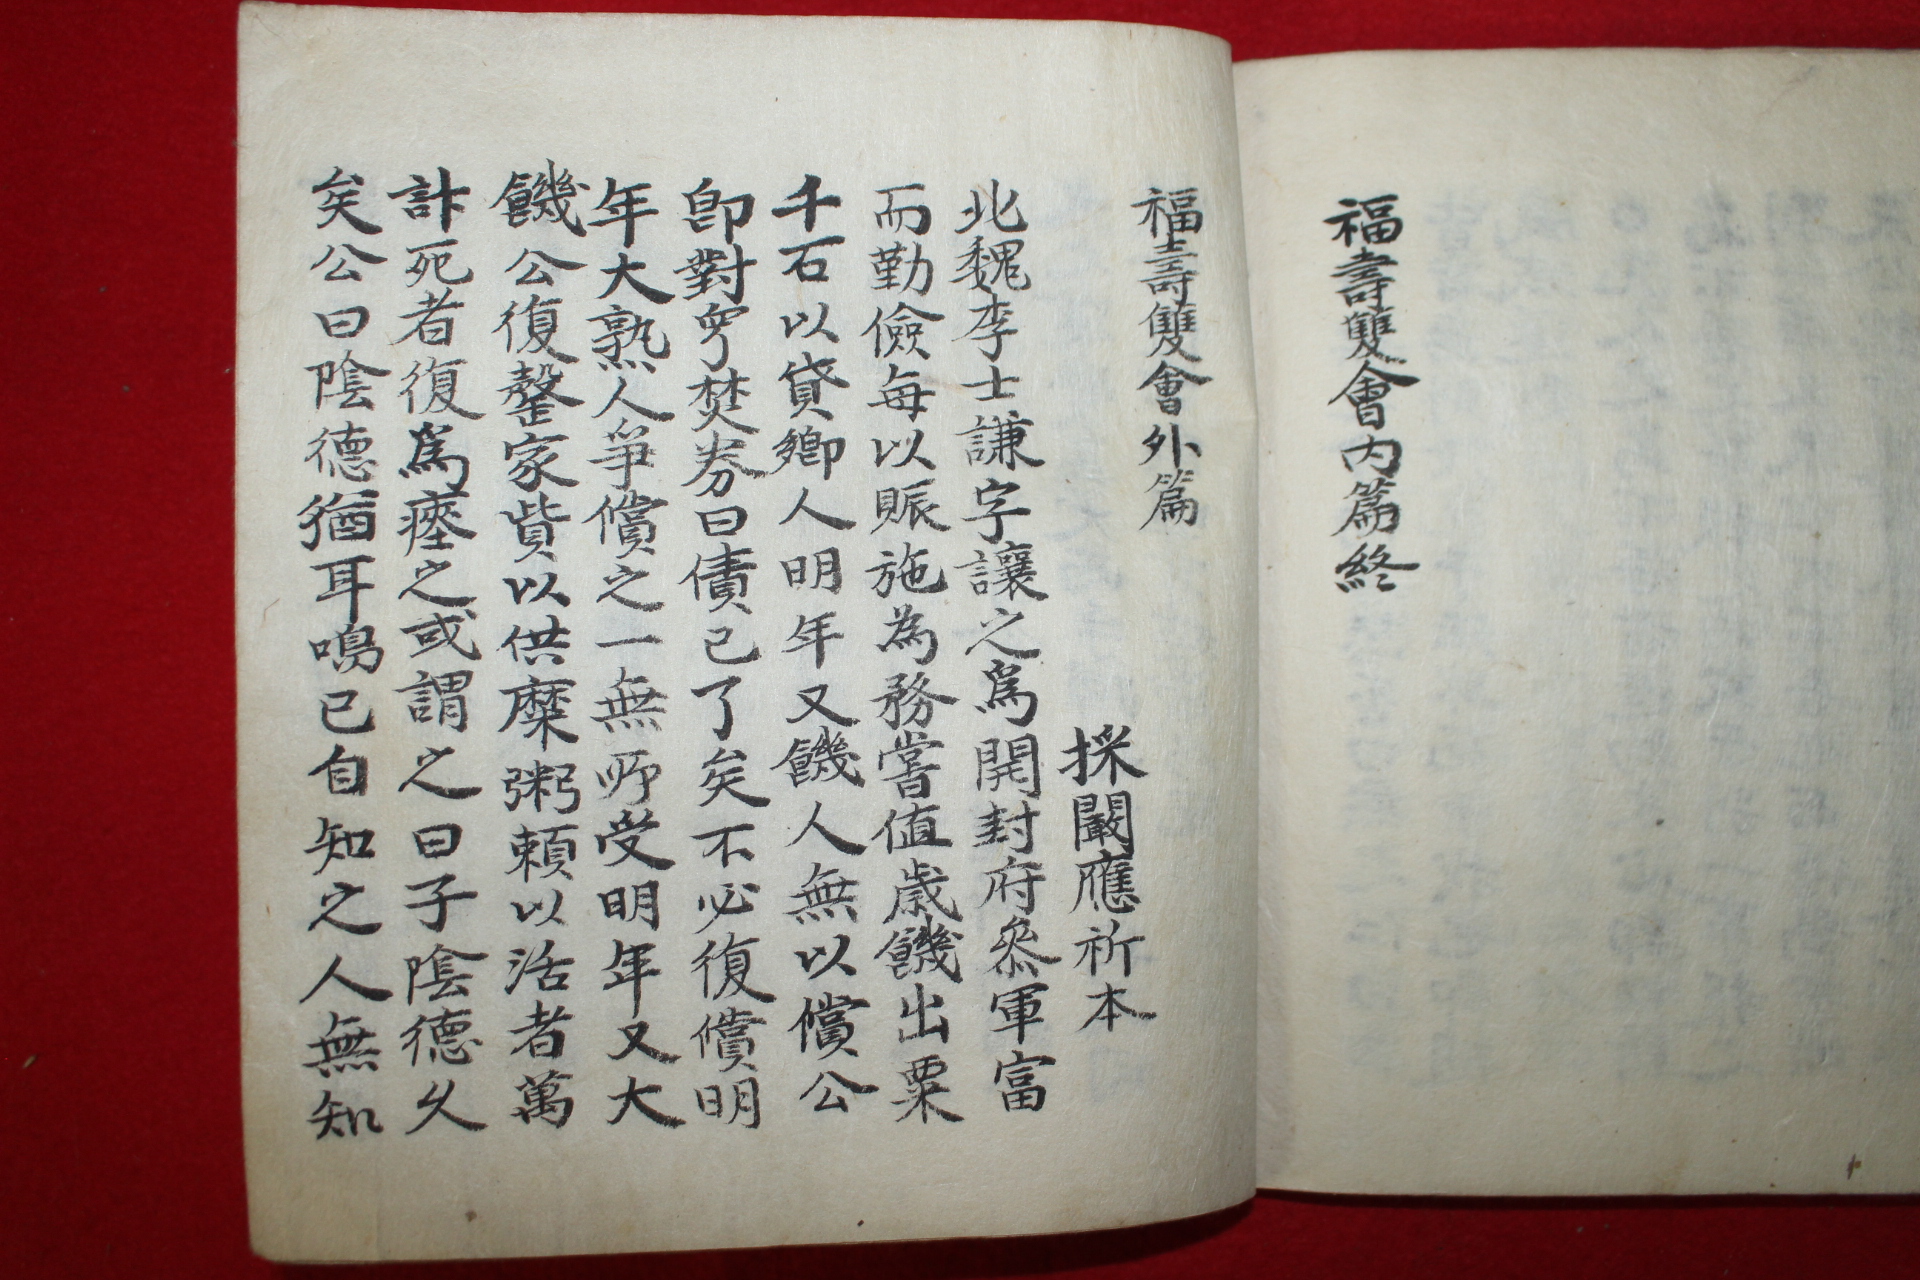 福壽雙會內篇終
福壽雙會外篇
採闞應祈本
北魏李士謙字讓之爲開封府叅軍富
而勤儉每以賑施為務嘗值歲饑出粟
千石以貸鄉人明年又饑人無以償公
卽對眾焚券曰債已了矣不必復償明
年大熟人爭償之一無所受明年又大
饑公復罄家貲以供糜粥賴以活者萬
計死者復爲瘞之或謂之曰子陰德久
矣公曰陰德猶耳鳴已自知之人無知